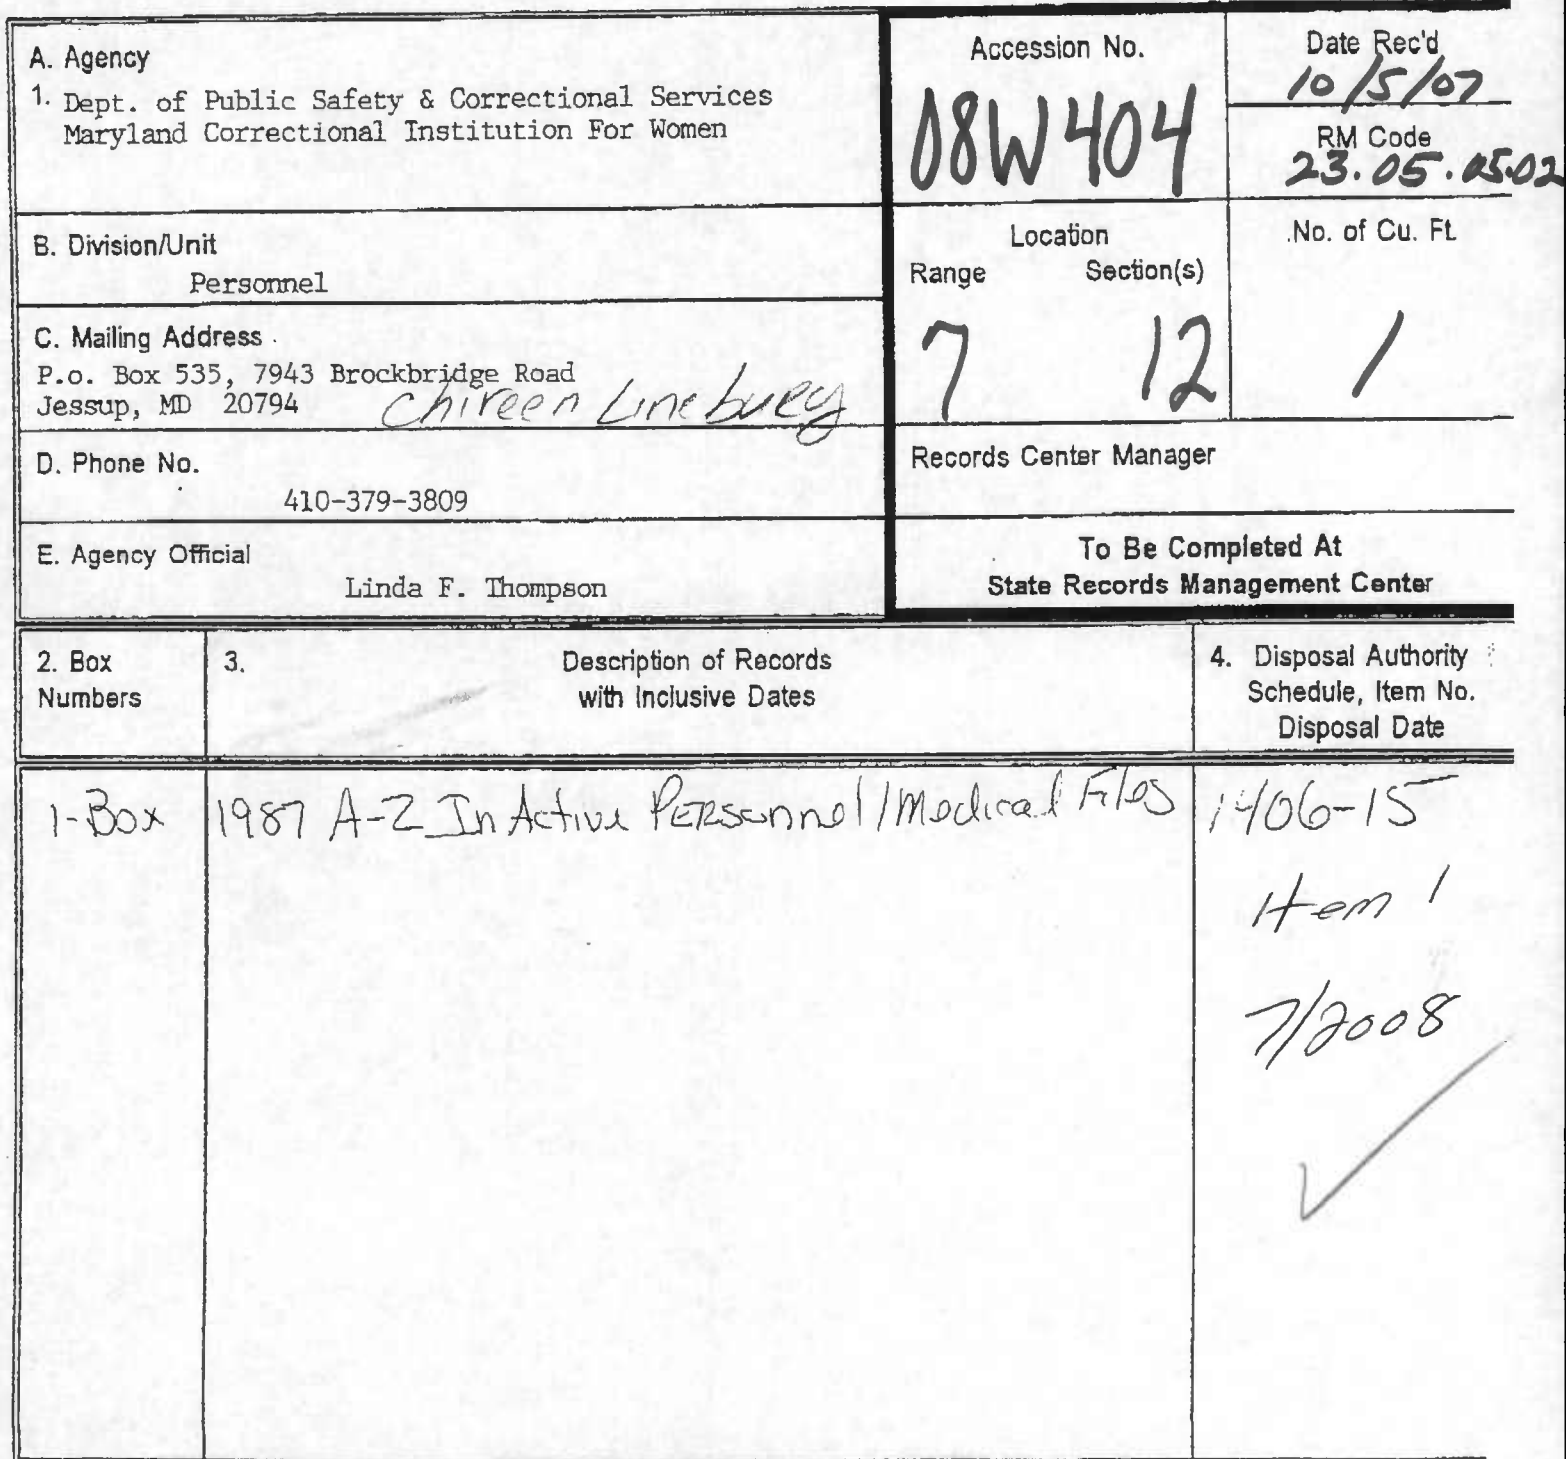 A. Agency
1. Dept. of Public Safety & Correctional Services
Maryland Correctional Institution For Women
B. Division/Unit
Personnel
C. Mailing Address
P.o. Box 535, 7943 Brockbridge Road
Jessup, MD 20794 Chireen
D. Phone No.
410-379-3809
E. Agency Official
Linda F. Thompson
Accession No.
08W404
Date Rec'd
10/5/07
RM Code
23.05.05.02
Location
Range Section(s)
7 12
No. of Cu. Ft.
1
Records Center Manager
To Be Completed At
State Records Management Center
2. Box
Numbers
3. Description of Records
with Inclusive Dates
4. Disposal Authority
Schedule, Item No.
Disposal Date
1-Box 1987 A-Z InActive Personnel/Medical Files 1406-15
Item 1
7/2008